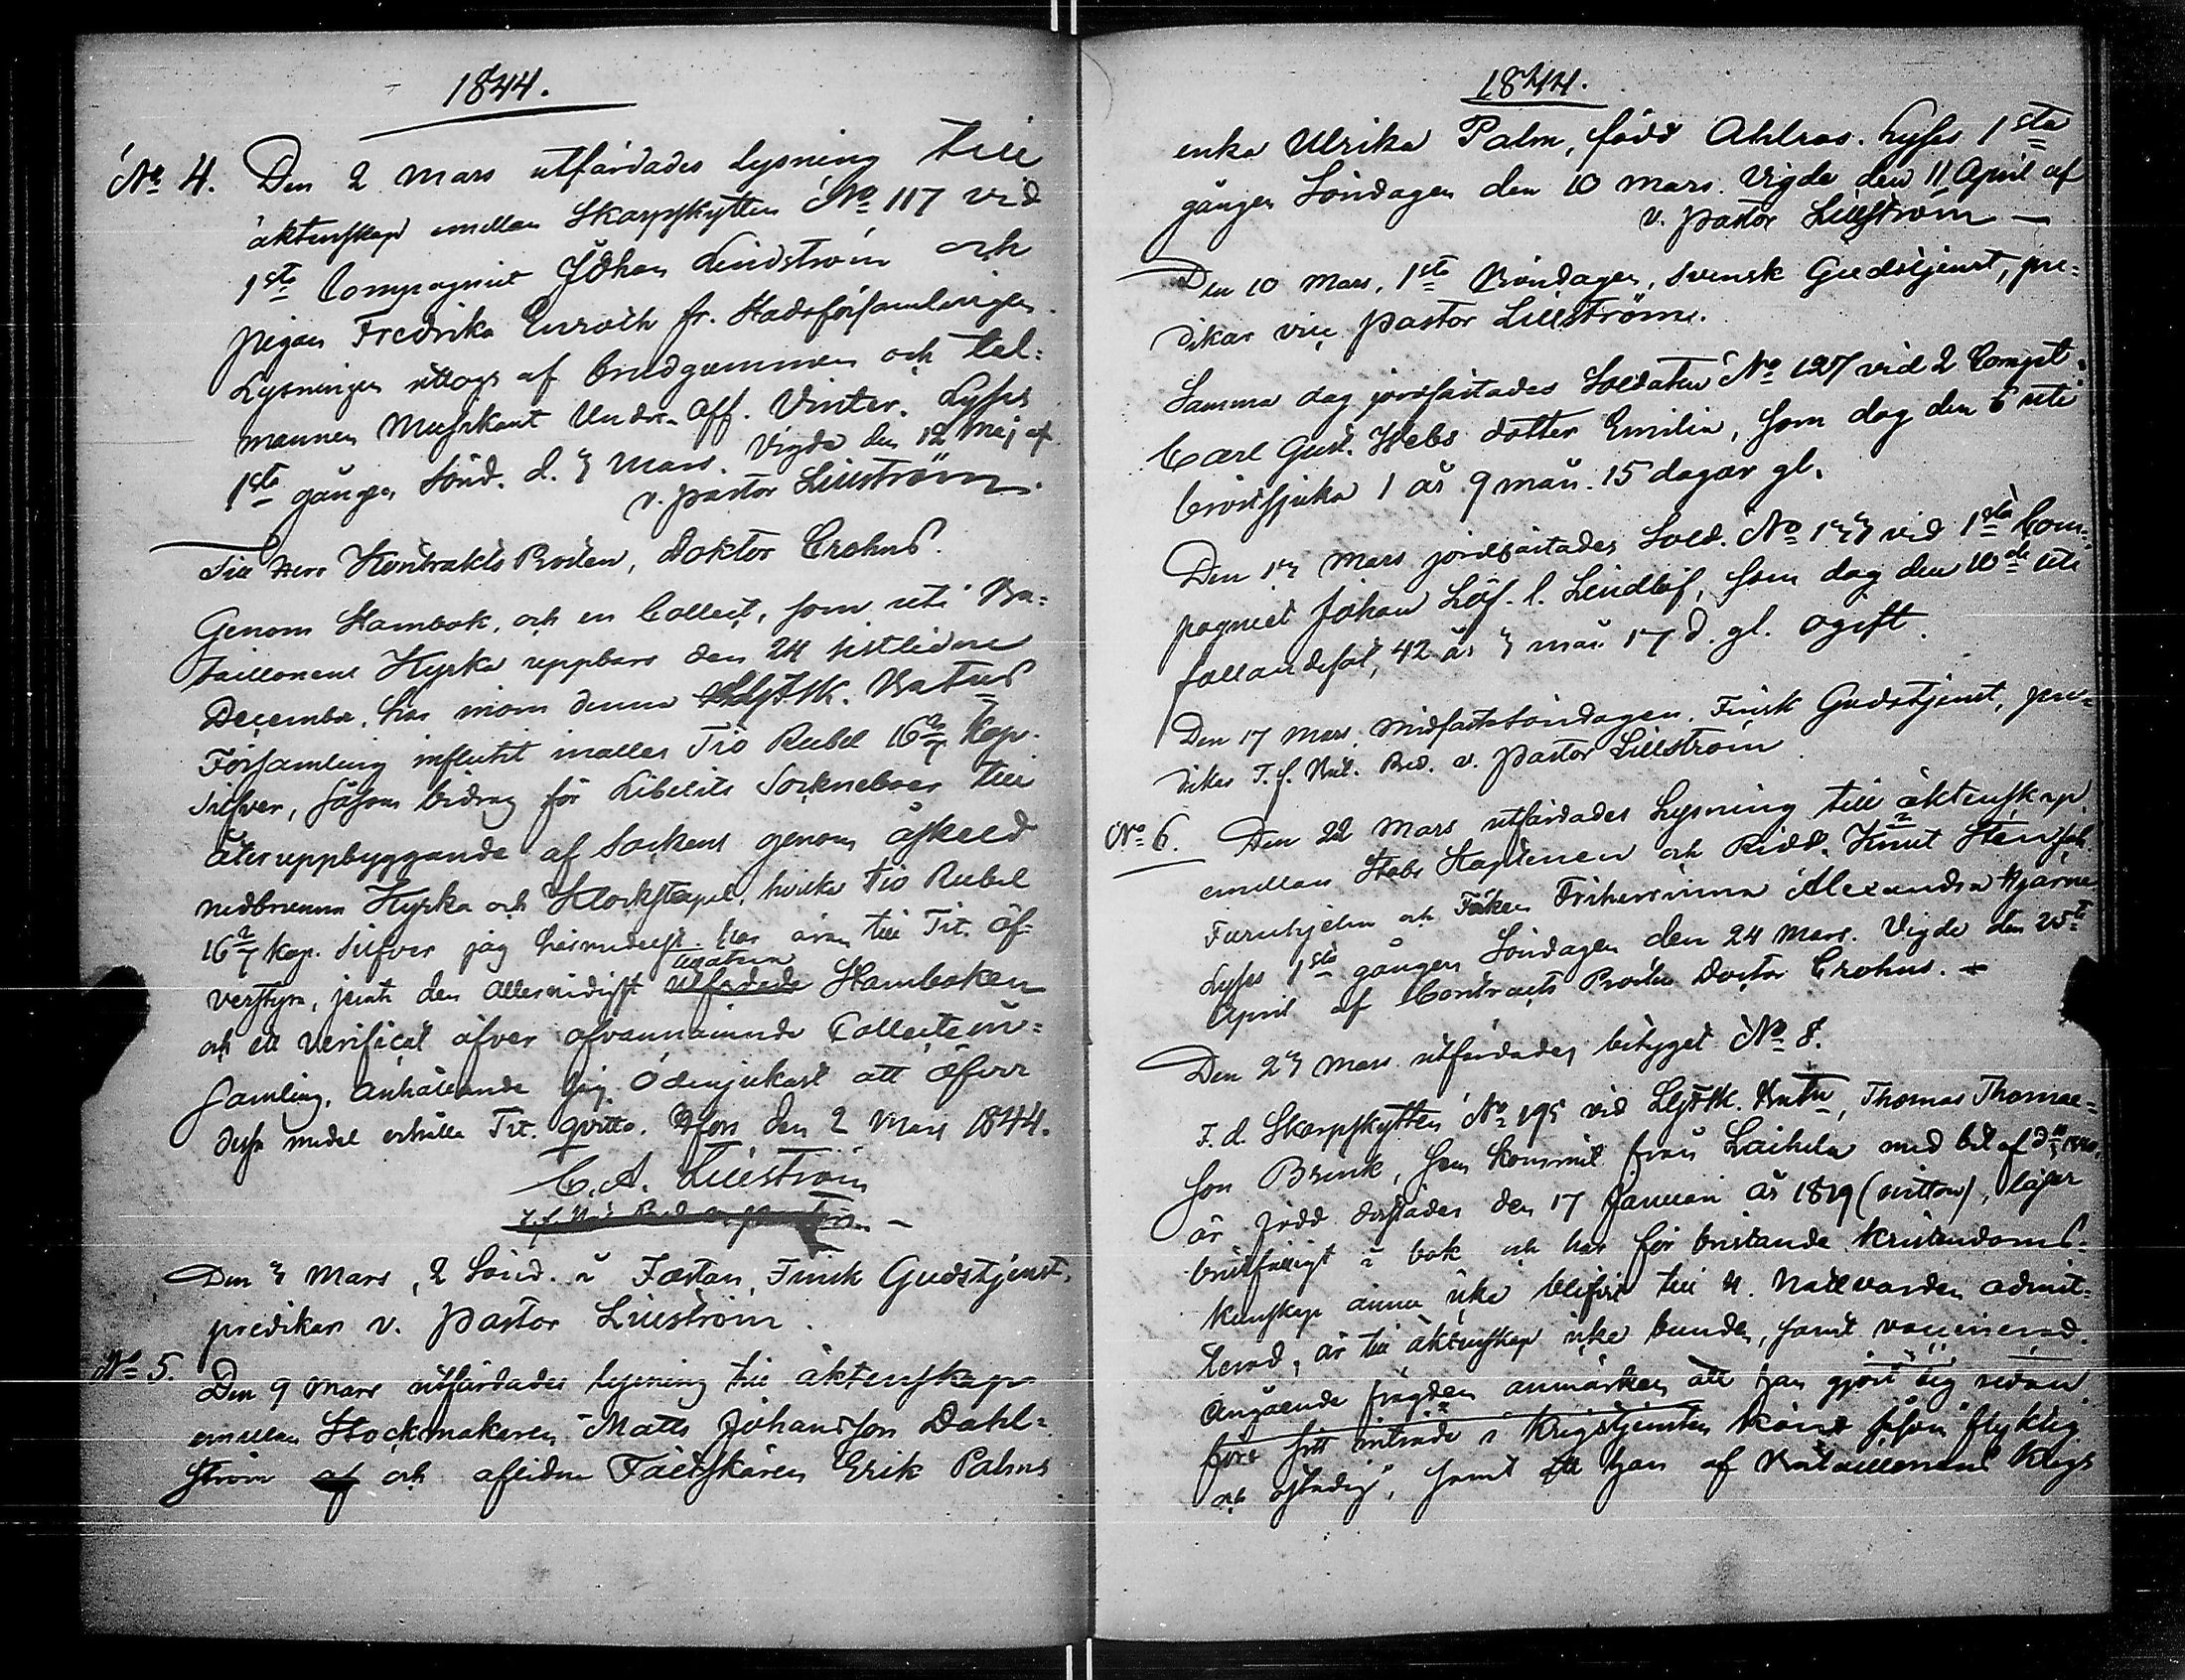 1844.
No 4. Den 2 Mars utfärdades Lysning till
äktenskap emellan Skarpskytten No 117 vid
1sta Compagniet Johan Lindström och
pigan Fredrika Enroth fr. Stadsförsamlingen.
Lysningen uttogs af brudgummen och tal-
mannen Musikant Undr. Off. Vinter. Lystes
1sta gången Sönd. d. 3 Mars. Vigde den 12 Maj af
v. pastor Lillström.
Till Herr Kontrakts Prosten, Doktor Crohns.
Genom Stambok, och en Collect, som uti Ba-
taillonens Kyrka uppbars den 24 sistlidne
December, har inom denna Batns
Församling influtit inalles Tio Rubel 16 2/7 Kop.
Silfver, såsom bidrag för Libelits Sockneboer till
återuppbyggande af Sockens genom åskeld
nedbrunna Kyrka och Klockstapel, hvilka tio Rubel
16 2/7 kop. Silfver jag härmedelst har äran till Tit. öf-
versända, jemte den allernådigst Stamboken
och ett Verificat öfver ofvannämnde Collectin-
samling. Anhållande jag ödmjukast att öfver
dessa medel erhålla Tit. qvitto. Åfon den 2 Mars 1844.
C. A. Lillström
Den 3 Mars, 2 Sönd. i Fastan, Finsk Gudstjenst,
predikar v. pastor Lillström.
No 5. Den 9 Mars utfärdades lysning till äktenskap
emellan Stockmakaren Matts Johansson Dahl-
ström af och aflidne Fältskären Erik Palms
1844.
enka Ulrika Palm, född Ahlroos. Lystes 1sta
gången Söndagen den 10 Mars. Vigde den 11 April af
v. pastor Lillström —
Den 10 Mars, 1sta Böndagen, Svensk Gudstjenst, pre-
dikar vice pastor Lillström.
Samma dag jordfästades Soldaten No 127 vid 2 Compt.
Carl Gust. Webs dotter Emilia, som dog den 6 uti
bröstsjuka 1 år 9 mån. 15 dagar gl.
Den 13 Mars jordfästades Sold. No 133 vid 1sta Com-
pagniet Johan Löf. l. Lindlöf, som dog den 10de uti
fallandesot, 42 år 3 mån 17 d. gl. ogift.
Den 17 Mars, Midfasto söndagen, Finsk Gudstjenst, pre-
dikar T.f. Bat. Pred. v. Pastor Lillström
No 6. Den 22 Mars utfärdades Lysning till äktenskap
emellan Stabs Kaptenen och Ridd. Knut
Furuhjelm och Fröken Friherrinna Alexandra Hjärne
Lystes 1sta gången Söndagen den 24 Mars. Vigde den 25te
April af Contracts Prosten Doctor Crohns.
Den 23 Mars utfärdades betyget No 8.
F. d. Skarpskytten No 195 vid Batn, Thomas Thomas-
son Brink, som kommit från Laihela med bet af
är född derstädes den 17 Januari år 1819 (nitton), läser
bristfälligt i bok och har för bristande kristendoms-
kunskap ännu icke blifvit till H. Nattvarden admit-
terad, är till äktenskap icke bunden, samt vaccinerad.
Angående frägden anmärkes att han gjort sig redan
före sitt inträde i Krigstjensten känd såsom flyktig
och ostadig, samt att han af Bataillonens Krigs